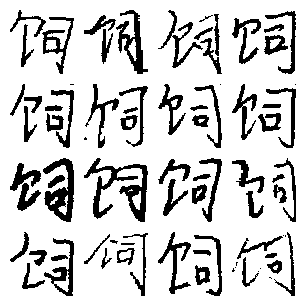 饲饲饲饲
饲饲饲饲
饲饲饲饲
饲饲饲饲